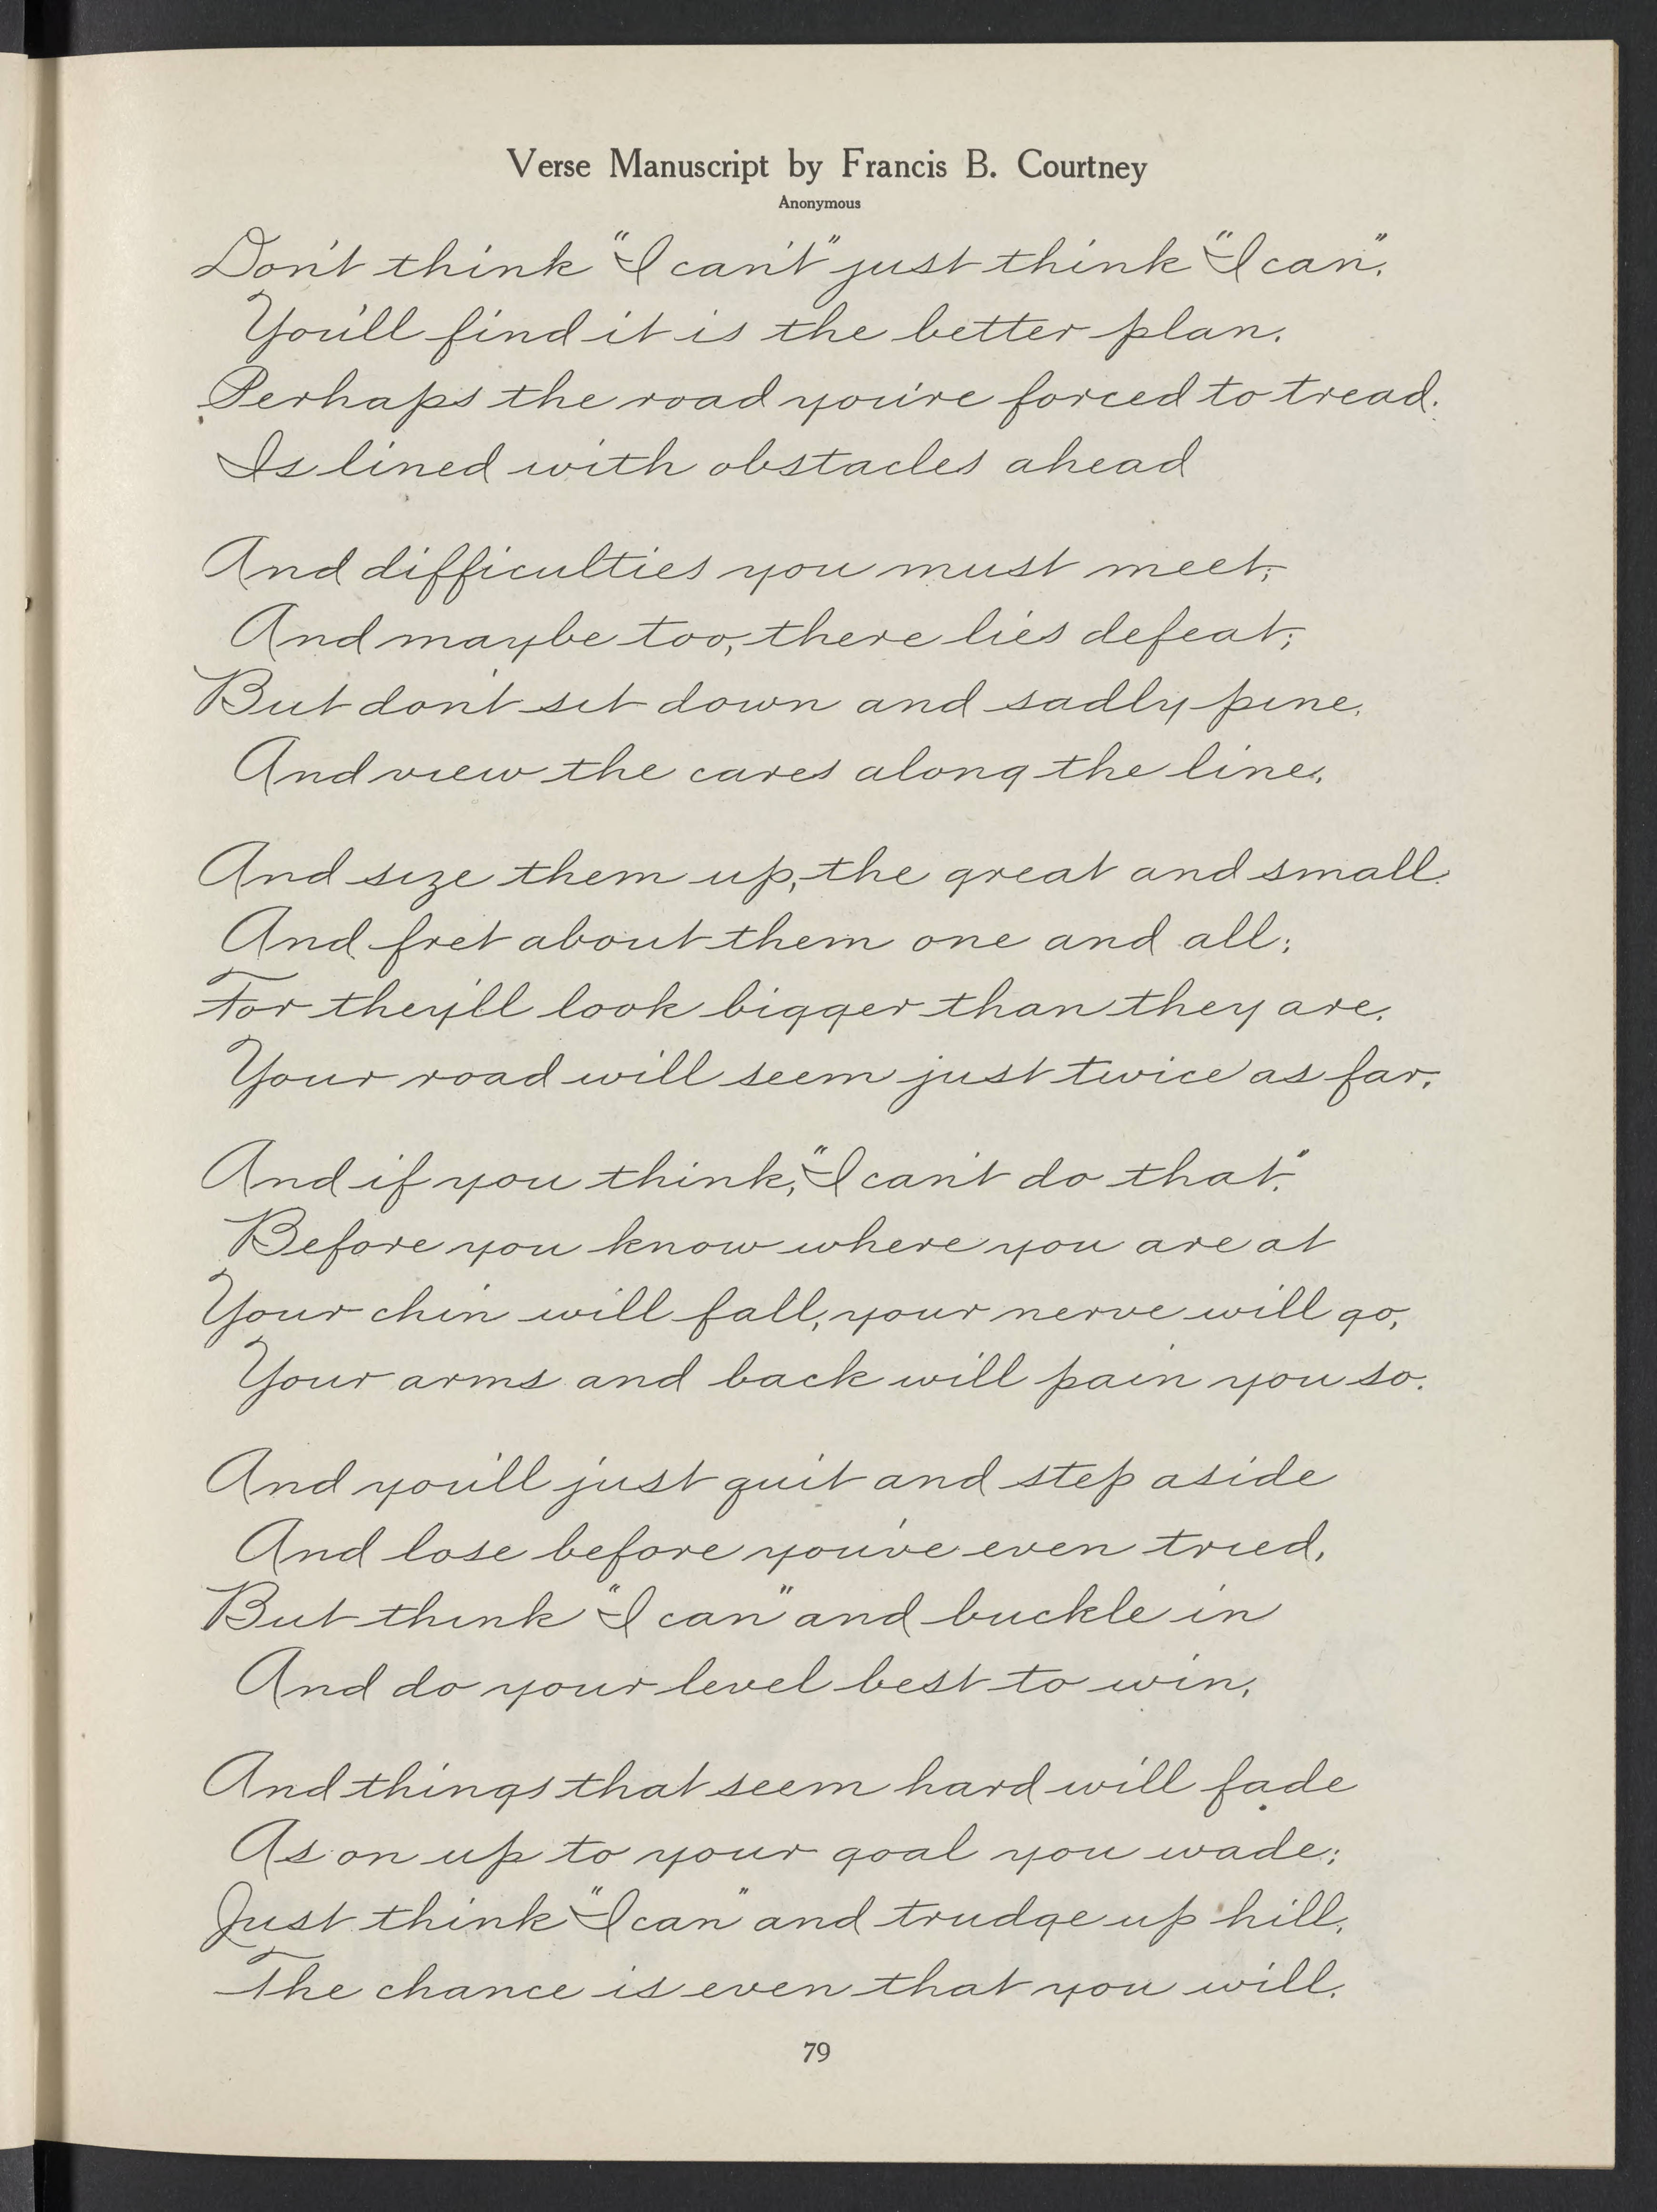 Verse Manuscript by Francis B. Courtney
Anonymous
Don't think "I can't" just think "I can".
You'll find it is the better plan.
Perhaps the road you're forced to tread.
Is lined with obstacles ahead
And difficulties you must meet;
And maybe too, there lies defeat;
But don't sit down and sadly pine,
And view the cares along the line,
And size them up, the great and small.
And fret about them one and all;
For they'll look bigger than they are,
Your road will seem just twice as far,
And if you think, "I can't do that."
Before you know where you are at
Your chin will fall, your nerve will go,
Your arms and back will pain you so.
And you'll just quit and step aside
And lose before you've even tried,
But think "I can" and buckle in
And do your level best to win,
And things that seem hard will fade
As on up to your goal you wade;
Just think "I can" and trudge up hill,
The chance is even that you will.
79